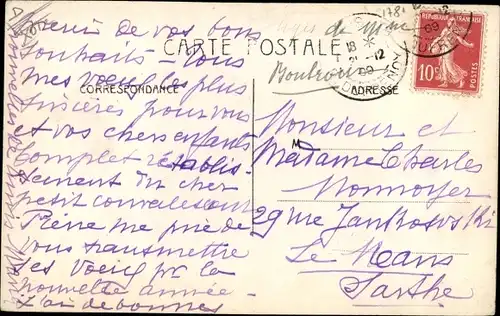 CARTE POSTALE
CORRESPONDANCE
ADRESSE
RÉPUBLIQUE FRANÇAISE
10c
POSTES
18 *
21 -12
09
Merci de vos bons
souhaits - tous
mes voeux les plus
sincères pour vous
et vos chers enfants
Complet rétablis-
sement du cher
petit convalescent
Pierre me prie de
vous transmettre
ses voeux pr la
nouvelle année -
Monsieur et
Madame Charles
Monnoyer
29 rue Jankowski
Le Mans
Sarthe